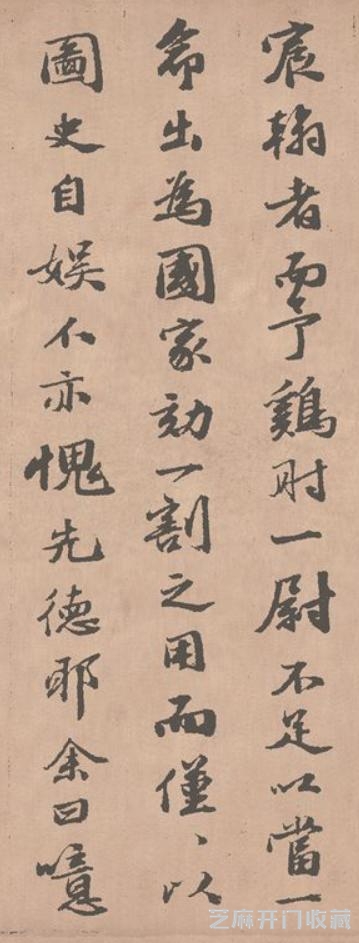 宸翰者而予鷄肘一尉不足以當一
命出為國家効一割之用而僅〻以
圖史自娱不亦愧先德耶余曰噫
芝麻开门收藏